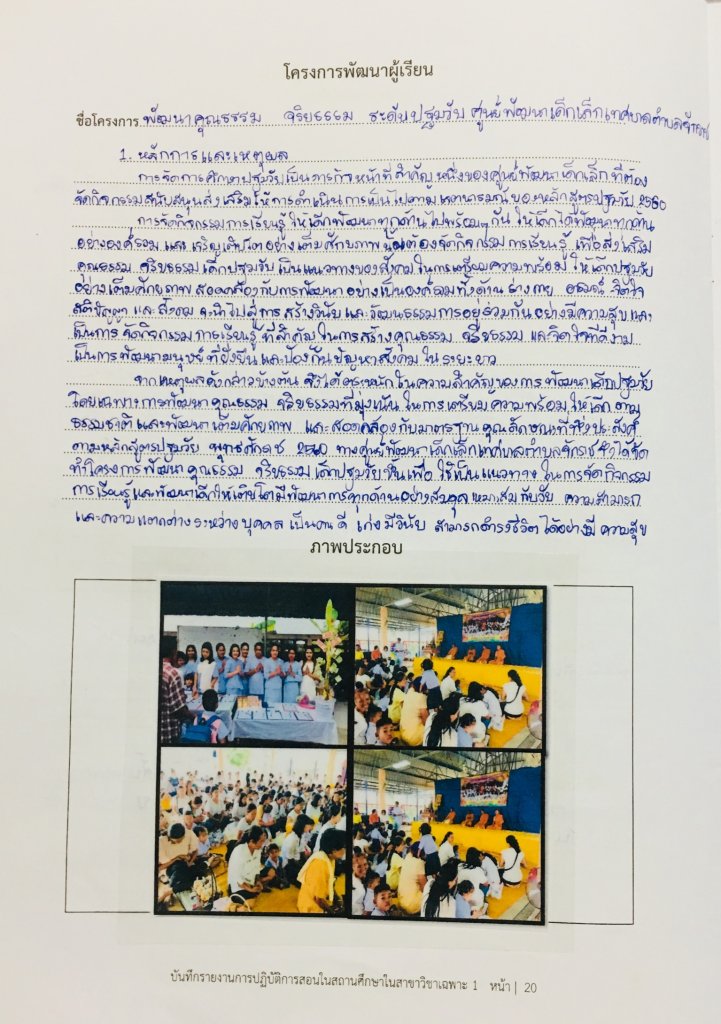 โครงการพัฒนาผู้เรียน
ชื่อโครงการ พัฒนาคุณธรรม จริยธรรม ระดับปฐมวัย ศูนย์พัฒนาเด็กเล็กเทศบาลตำบลจักราช
1. หลักการและเหตุผล
การจัดการศึกษาปฐมวัยเป็นภารกิจหน้าที่สำคัญหนึ่งของศูนย์พัฒนาเด็กเล็กที่ต้อง
จัดกิจกรรมสนับสนุนส่งเสริมให้การดำเนินการเป็นไปตามเจตนารมณ์ของหลักสูตรปฐมวัย 2560
การจัดกิจกรรมการเรียนรู้ให้เด็กพัฒนาทุกด้านไปพร้อมๆกัน ให้เด็กได้พัฒนาทุกด้าน
อย่างองค์รวม และเจริญเติบโตอย่างเต็มศักยภาพนั้นต้องจัดกิจกรรมการเรียนรู้ เพื่อส่งเสริม
คุณธรรม จริยธรรมเด็กปฐมวัย เป็นแนวทางของสังคมในการเตรียมความพร้อม ให้เด็กปฐมวัย
อย่างเต็มศักยภาพ สอดคล้องกับการพัฒนาอย่างเป็นองค์รวมทั้งด้านร่างกาย อารมณ์ จิตใจ
สติปัญญา และสังคม จะนำไปสู่การสร้างวินัย และวัฒนธรรมการอยู่ร่วมกันอย่างมีความสุข และ
เป็นการจัดกิจกรรมการเรียนรู้ที่สำคัญในการสร้างคุณธรรม จริยธรรม และจิตใจที่ดีงาม
เป็นการพัฒนามนุษย์ที่ยั่งยืนและป้องกันปัญหาสังคมในระยะยาว
จากเหตุผลดังกล่าวข้างต้น จึงได้ตระหนักในความสำคัญของการพัฒนาเด็กปฐมวัย
โดยเฉพาะการพัฒนาคุณธรรม จริยธรรมที่มุ่งเน้นในการเตรียมความพร้อมให้เด็กตาม
ธรรมชาติและพัฒนาเต็มศักยภาพ และสอดคล้องกับมาตรฐานคุณลักษณะที่พึงประสงค์
ตามหลักสูตรปฐมวัย พุทธศักราช 2560 ทางศูนย์พัฒนาเด็กเล็กเทศบาลตำบลจักราชจึงได้จัด
ทำโครงการพัฒนาคุณธรรม จริยธรรมเด็กปฐมวัยขึ้นเพื่อใช้เป็นแนวทางในการจัดกิจกรรม
การเรียนรู้และพัฒนาเด็กให้เติบโตมีพัฒนาการทุกด้านอย่างสมดุลเหมาะสมกับวัย ความสามารถ
และความแตกต่างระหว่างบุคคล เป็นคนดี เก่ง มีวินัย สามารถดำรงชีวิตได้อย่างมีความสุข
ภาพประกอบ
บันทึกรายงานการปฏิบัติการสอนในสถานศึกษาในสาขาวิชาเฉพาะ 1 หน้า | 20